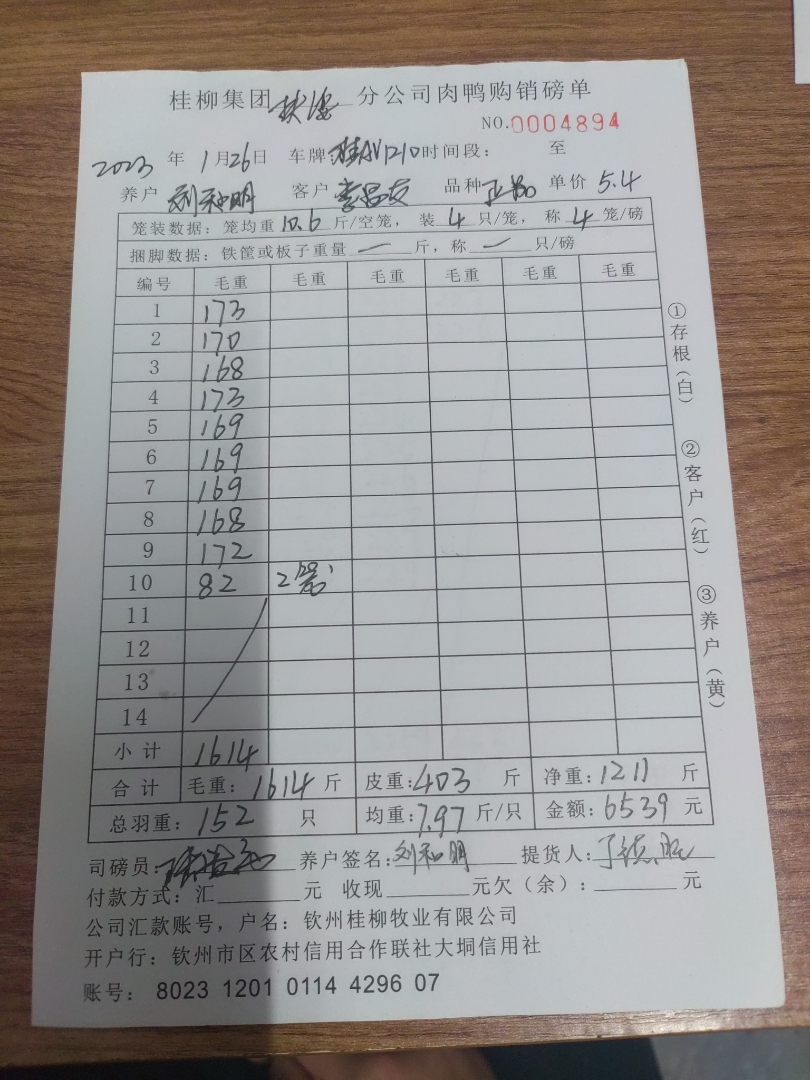 桂柳集团 钦源 分公司肉鸭购销磅单
NO.0004894
2023 年 1月26日 车牌 桂AV1210 时间段： 至
养户 刘和明 客户 李昌友 品种 单价 5.4
笼装数据：笼均重 10.6 斤/空笼，装 4 只/笼，称 4 笼/磅
捆脚数据：铁筐或板子重量 — 斤，称 — 只/磅
编号 毛重 毛重 毛重 毛重 毛重 毛重
1 173
2 170
3 168
4 173
5 169
6 169
7 169
8 168
9 172
10 82 2笼
11
12
13
14
小计 1614
合计 毛重：1614 斤 皮重：403 斤 净重：1211 斤
总羽重：152 只 均重：7.97 斤/只 金额：6539 元
司磅员： 养户签名：刘和明 提货人：
付款方式：汇 元 收现 元欠（余）： 元
公司汇款账号，户名：钦州桂柳牧业有限公司
开户行：钦州市区农村信用合作联社大垌信用社
账号：8023 1201 0114 4296 07
①存根（白）
②客户（红）
③养户（黄）